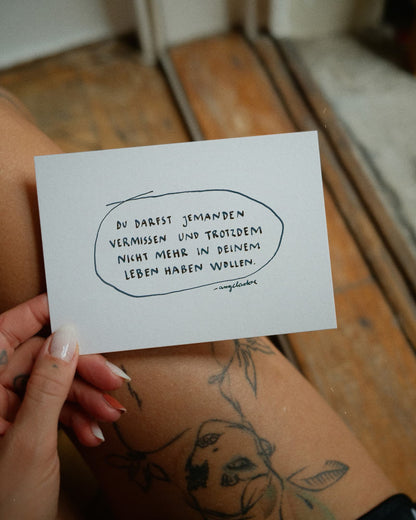 DU DARFST JEMANDEN
VERMISSEN UND TROTZDEM
NICHT MEHR IN DEINEM
LEBEN HABEN WOLLEN.